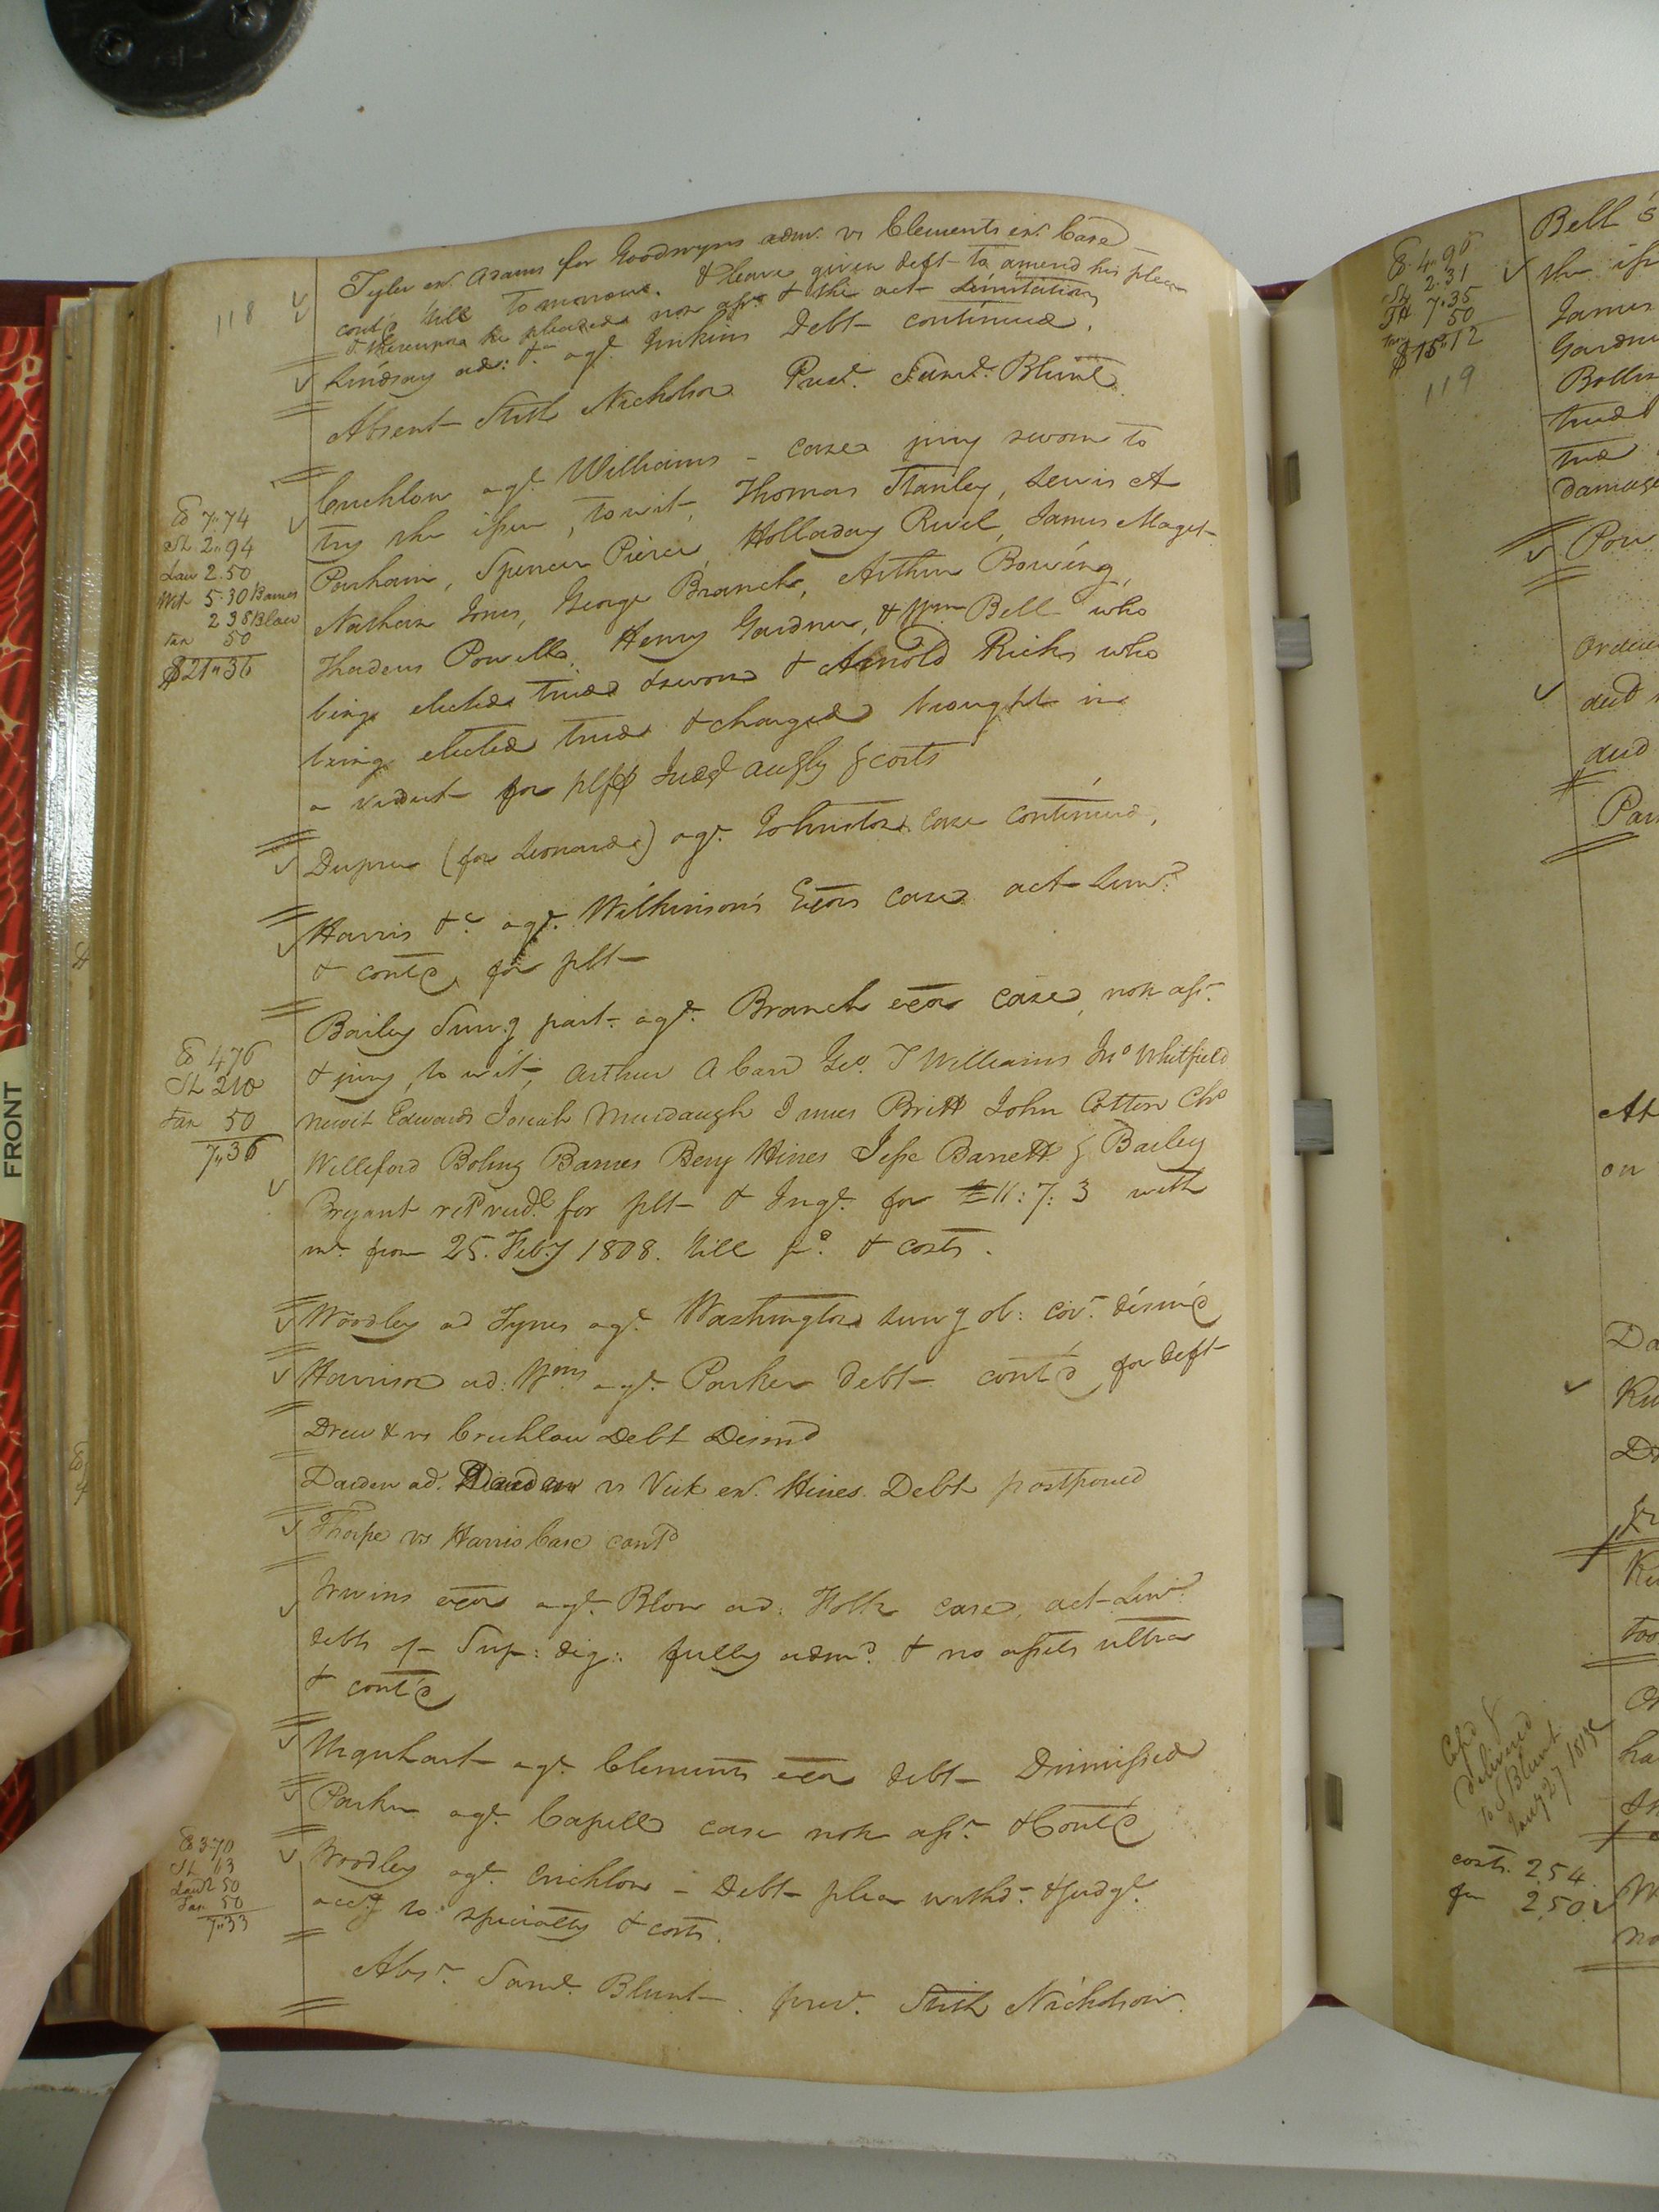 118
Tyler exr. Adams for Goodwyns admr. vs Clements exr. Case
cont'd till tomorrow. & leave given deft to amend his plea
& thereupon he pleaded non asst. & the act limitations
Lindsay adr: &c agt. Jenkins Debt continued.
Absent Stith Nicholson Prest. Saml. Blunt.
Crichlow agt. Williams - case jury sworn to
try the issue, to wit, Thomas Stanley, Lewis A
Parham, Spencer Pierce, Holladay Revel, James Maget
Nathan Jones, George Branch, Arthur Bowing,
Thadeus Powell, Henry Gardner, & Wm Bell who
being elected tried & sworn & Arnold Ricks who
being elected tried & charged brought in
a verdict for plff Judgt accgly & costs
Ck 7.74
Sh 2.94
Law 2.50
Wit 5.30 Barnes
2 38 Blow
tax 50
$21.36
Dupree (for Leonard) agt. Johnston case continued,
Harris &c agt. Wilkinson's Exors case act Limd.
& cont'd, for plt
Bailey Surv'g part. agt. Branch exor case, non asst.
& jury, to wit, Arthur A Carr Geo. T Williams Jno Whitfield
Newit Edwards Josiah Murdaugh James Britt John Cotton Chs
Williford Boling Barnes Benj Hines Jesse Barrett & Bailey
Bryant retd verdt. for plt & Jugt. for £11:7:3 with
int. from 25. Feby 1808. till pd. & costs.
Ck 476
Sh 210
Tax 50
7.36
Woodley ad Tynes agt. Washington surv'g ob: covt. dismd
Harrison ad: Wms agt. Parker debt cont'd for deft
Drew & vs Crichlow Debt Dismd
Darden ad. Darden vs Vick exr. Hines. Debt postponed
Thorpe vs Harris Case contd
Irwins exor agt. Blow ad: Holt case, act Limd.
debts of Sup: dig: fully admd. & no assets ultra
& cont'd
Urquhart agt. Clements exor debt Dismissed
Parker agt. Capell case non asst. & Cont'd
Woodley agt. Crichlow - Debt plea withd. & judgt.
accg to specialty & costs.
Ck 370
Sh 63
Law 2 50
Tax 50
7.33
Abst. Saml. Blunt. prest. Stith Nicholson.
Ck 4.96
Sh 2.31
7.35
50
$15.12
119
Bell
the iss
James
Gardne
true
damage
Pow
Order
ded
ded
Par
At
on
Da
too
ha
Cop'd &
delivered
to S Blunt
Aug 27 1812
costs. 2.54
fee 2.50
no
FRONT